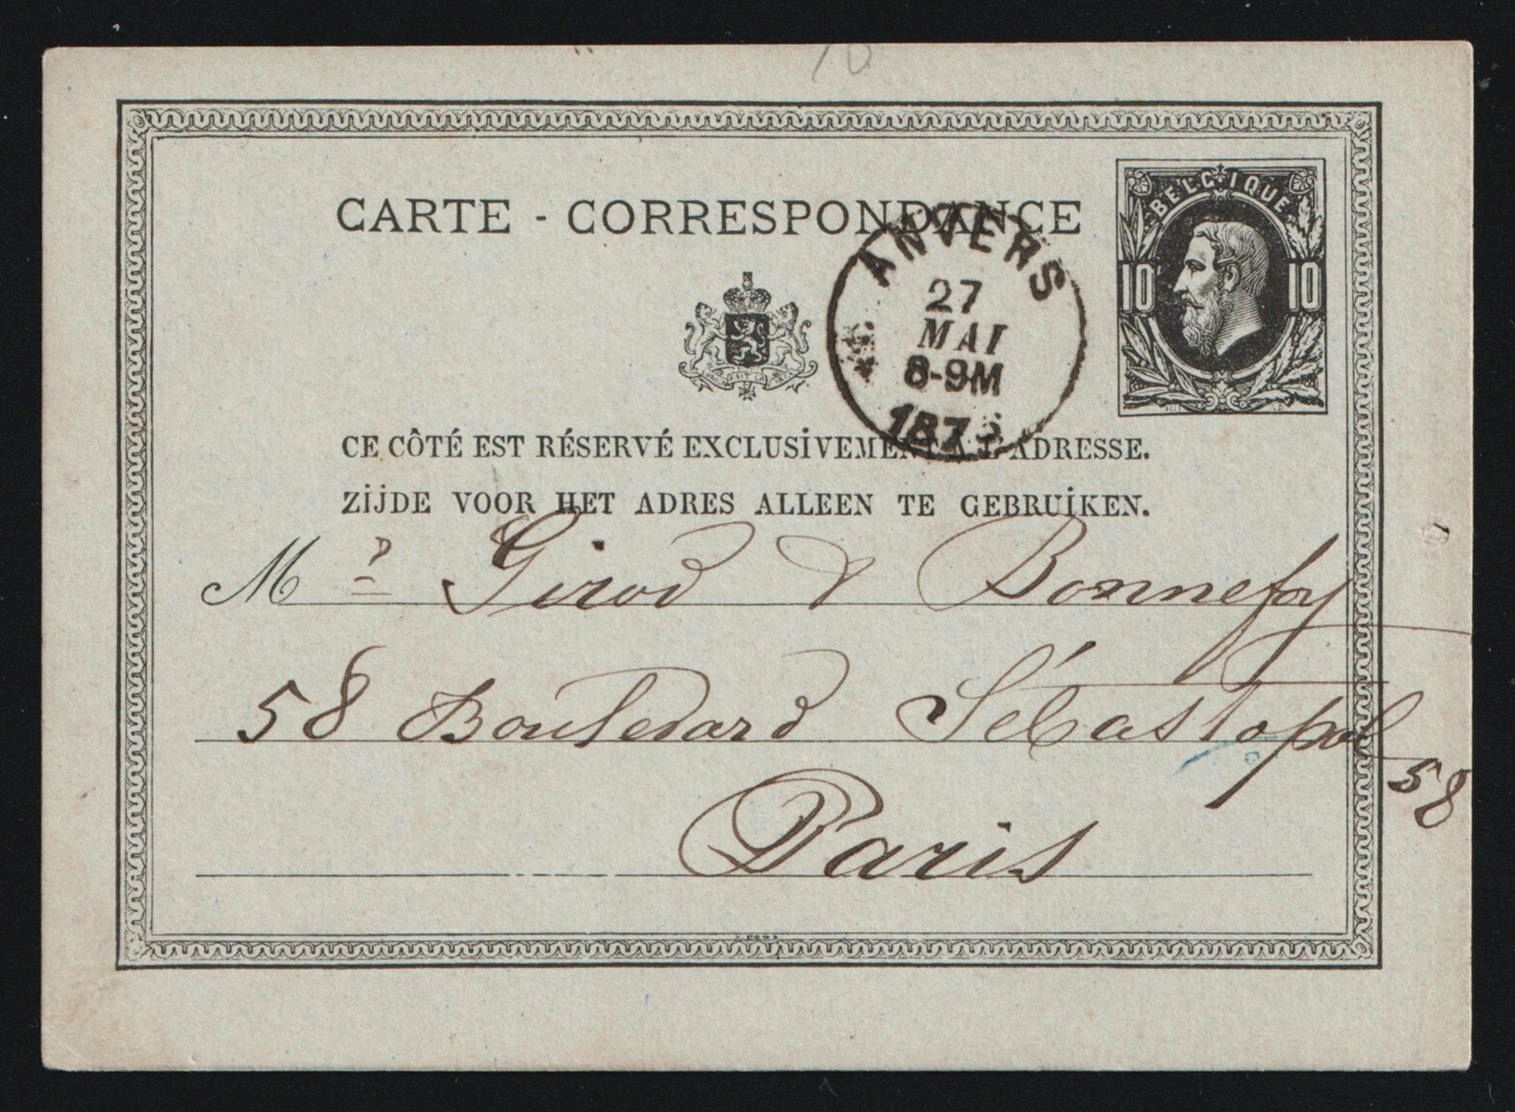 10
CARTE - CORRESPONDANCE
BELGIQUE
10 10
ANVERS
27
MAI
8-9M
CE CÔTÉ EST RÉSERVÉ EXCLUSIVEMENT À L'ADRESSE.
ZIJDE VOOR HET ADRES ALLEEN TE GEBRUIKEN.
Girod & Bonnefoy
58 Boulevard Sébastopol
58
Paris